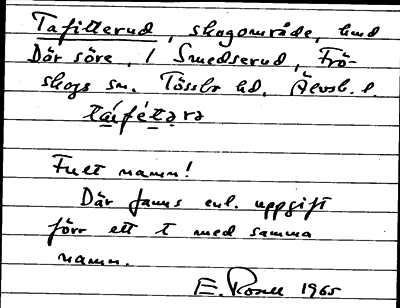 Tafitterud, skogsområde, hmd
Där söre, / Smedserud, Frö-
skogs sn. Tössbo hd. Älvsb. l.
Fult namn!
Där fanns enl. uppgift
förr ett t med samma
namn.
E. Rosell 1965